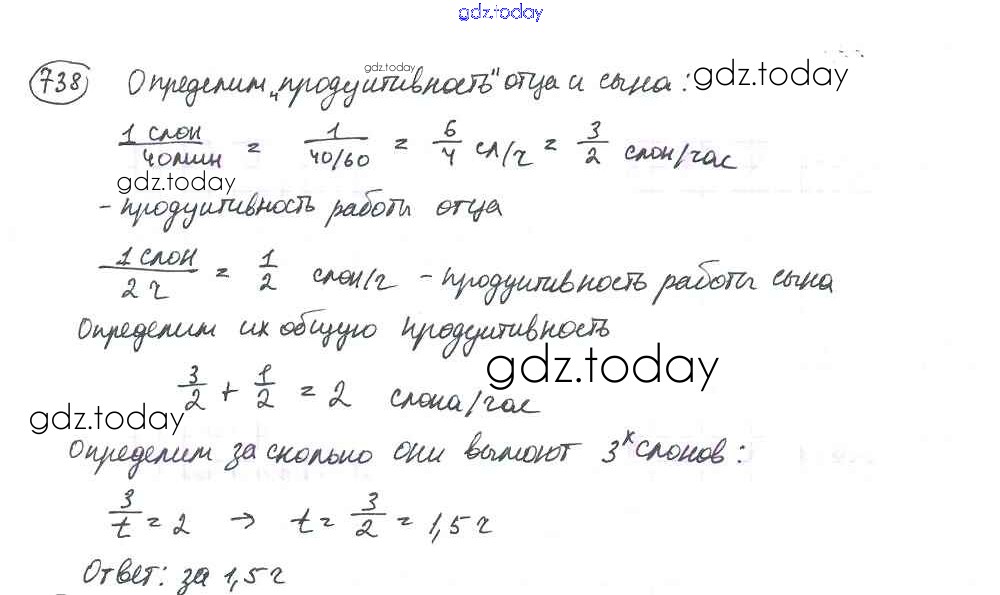 gdz.today
738 Определим „продуктивность" отца и сына: gdz.today
gdz.today
1 слон/40мин = 1/40/60 = 6/4 сл/ч = 3/2 слон/час
gdz.today
- продуктивность работы отца
1 слон/2 ч = 1/2 слон/ч - продуктивность работы сына
Определим их общую продуктивность
gdz.today
3/2 + 1/2 = 2 слона/час
gdz.today
Определим за сколько они вымоют 3х слонов:
3/t = 2 → t = 3/2 = 1,5 ч
Ответ: за 1,5 ч